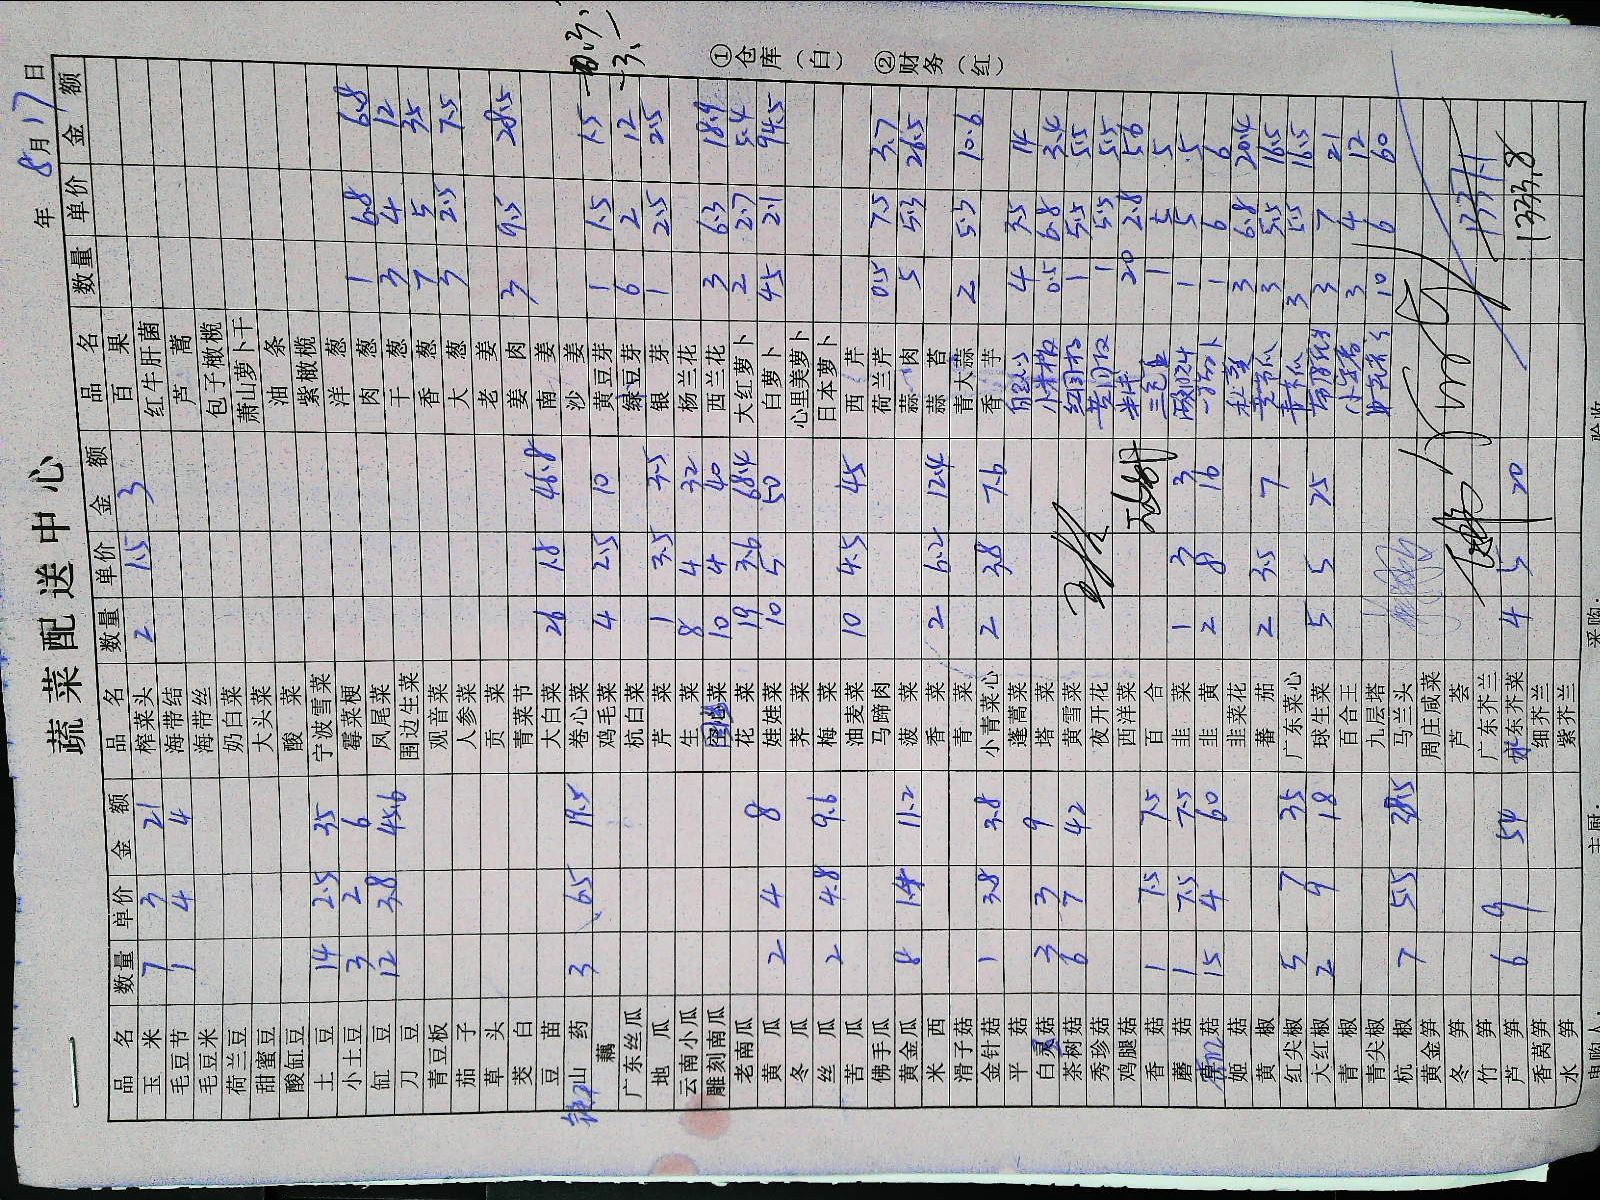 蔬菜配送中心
年 8月17日
品名 数量 单价 金额 品名 数量 单价 金额 品名 数量 单价 金额
玉米 7 3 21 榨菜头 2 1.5 3 百果
毛豆节 1 4 4 海带结 红牛肝菌
毛豆米 海带丝 芦蒿
荷兰豆 奶白菜 包子橄榄
甜蜜豆 大头菜 萧山萝卜干
酸缸豆 酸菜 油条
土豆 14 2.5 35 宁波雪菜 紫橄榄
小土豆 3 2 6 霉菜梗 洋葱 1 6.8 6.8
缸豆 12 3.8 45.6 凤尾菜 肉葱 3 4 12
刀豆 围边生菜 干葱 7 5 35
青豆板 观音菜 香葱 3 2.5 7.5
茄子 人参菜 大葱
草头 贡菜 老姜
茭白 青菜节 姜肉 3 9.5 28.5
豆苗 大白菜 26 1.8 46.8 南姜
铁棍山药 3 6.5 19.5 卷心菜 沙姜
藕 鸡毛菜 4 2.5 10 黄豆芽 1 1.5 1.5
广东丝瓜 杭白菜 绿豆芽 6 2 12
地瓜 芹菜 1 3.5 3.5 银芽 1 2.5 2.5
云南小瓜 生菜 8 4 32 杨兰花
雕刻南瓜 菜 10 4 40 西兰花 3 6.3 18.9
老南瓜 花菜 19 3.6 68.4 大红萝卜 2 2.7 5.4
黄瓜 2 4 8 娃娃菜 10 5 50 白萝卜 45 2.1 94.5
冬瓜 荠菜 心里美萝卜
丝瓜 2 4.8 9.6 梅菜 日本萝卜
苦瓜 油麦菜 10 4.5 45 西芹
佛手瓜 马蹄肉 荷兰芹 0.5 7.5 3.7
黄金瓜 8 1.4 11.2 菠菜 蒜肉 5 5.3 26.5
米西 香菜 2 6.2 12.4 蒜苔
滑子菇 青菜 青大蒜 2 5.3 10.6
金针菇 1 3.8 3.8 小青菜心 2 3.8 7.6 香芋
平菇 蓬蒿菜 4 3.5 14
白灵菇 3 3 9 塔菜 小米椒 0.5 6.8 3.4
茶树菇 6 7 42 黄雪菜 红圆椒 1 5.5 5.5
秀珍菇 夜开花 黄圆椒 1 5.5 5.5
鸡腿菇 西洋菜 20 2.8 56
香菇 1 7.5 7.5 百合 三色堇 1 5 5
蘑菇 1 7.5 7.5 韭菜 1 3 3 1 5 5
菇 15 4 60 韭黄 2 8 16 1 6 6
姬菇 韭菜花 3 6.8 20.4
黄椒 蕃茄 2 3.5 7 3 5.5 16.5
红尖椒 5 7 35 广东菜心 3 5.5 16.5
大红椒 2 9 18 球生菜 5 5 25 3 7 21
青椒 百合王 3 4 12
青尖椒 九层塔 10 6 60
杭椒 7 5.5 38.5 马兰头
黄金笋 周庄咸菜
冬笋 芦荟
竹笋 广东芥兰
芦笋 6 9 54 水东芥菜 4 5 20 1333.8
香莴笋 细芥兰
水笋 紫芥兰
①仓库（白） ②财务（红）